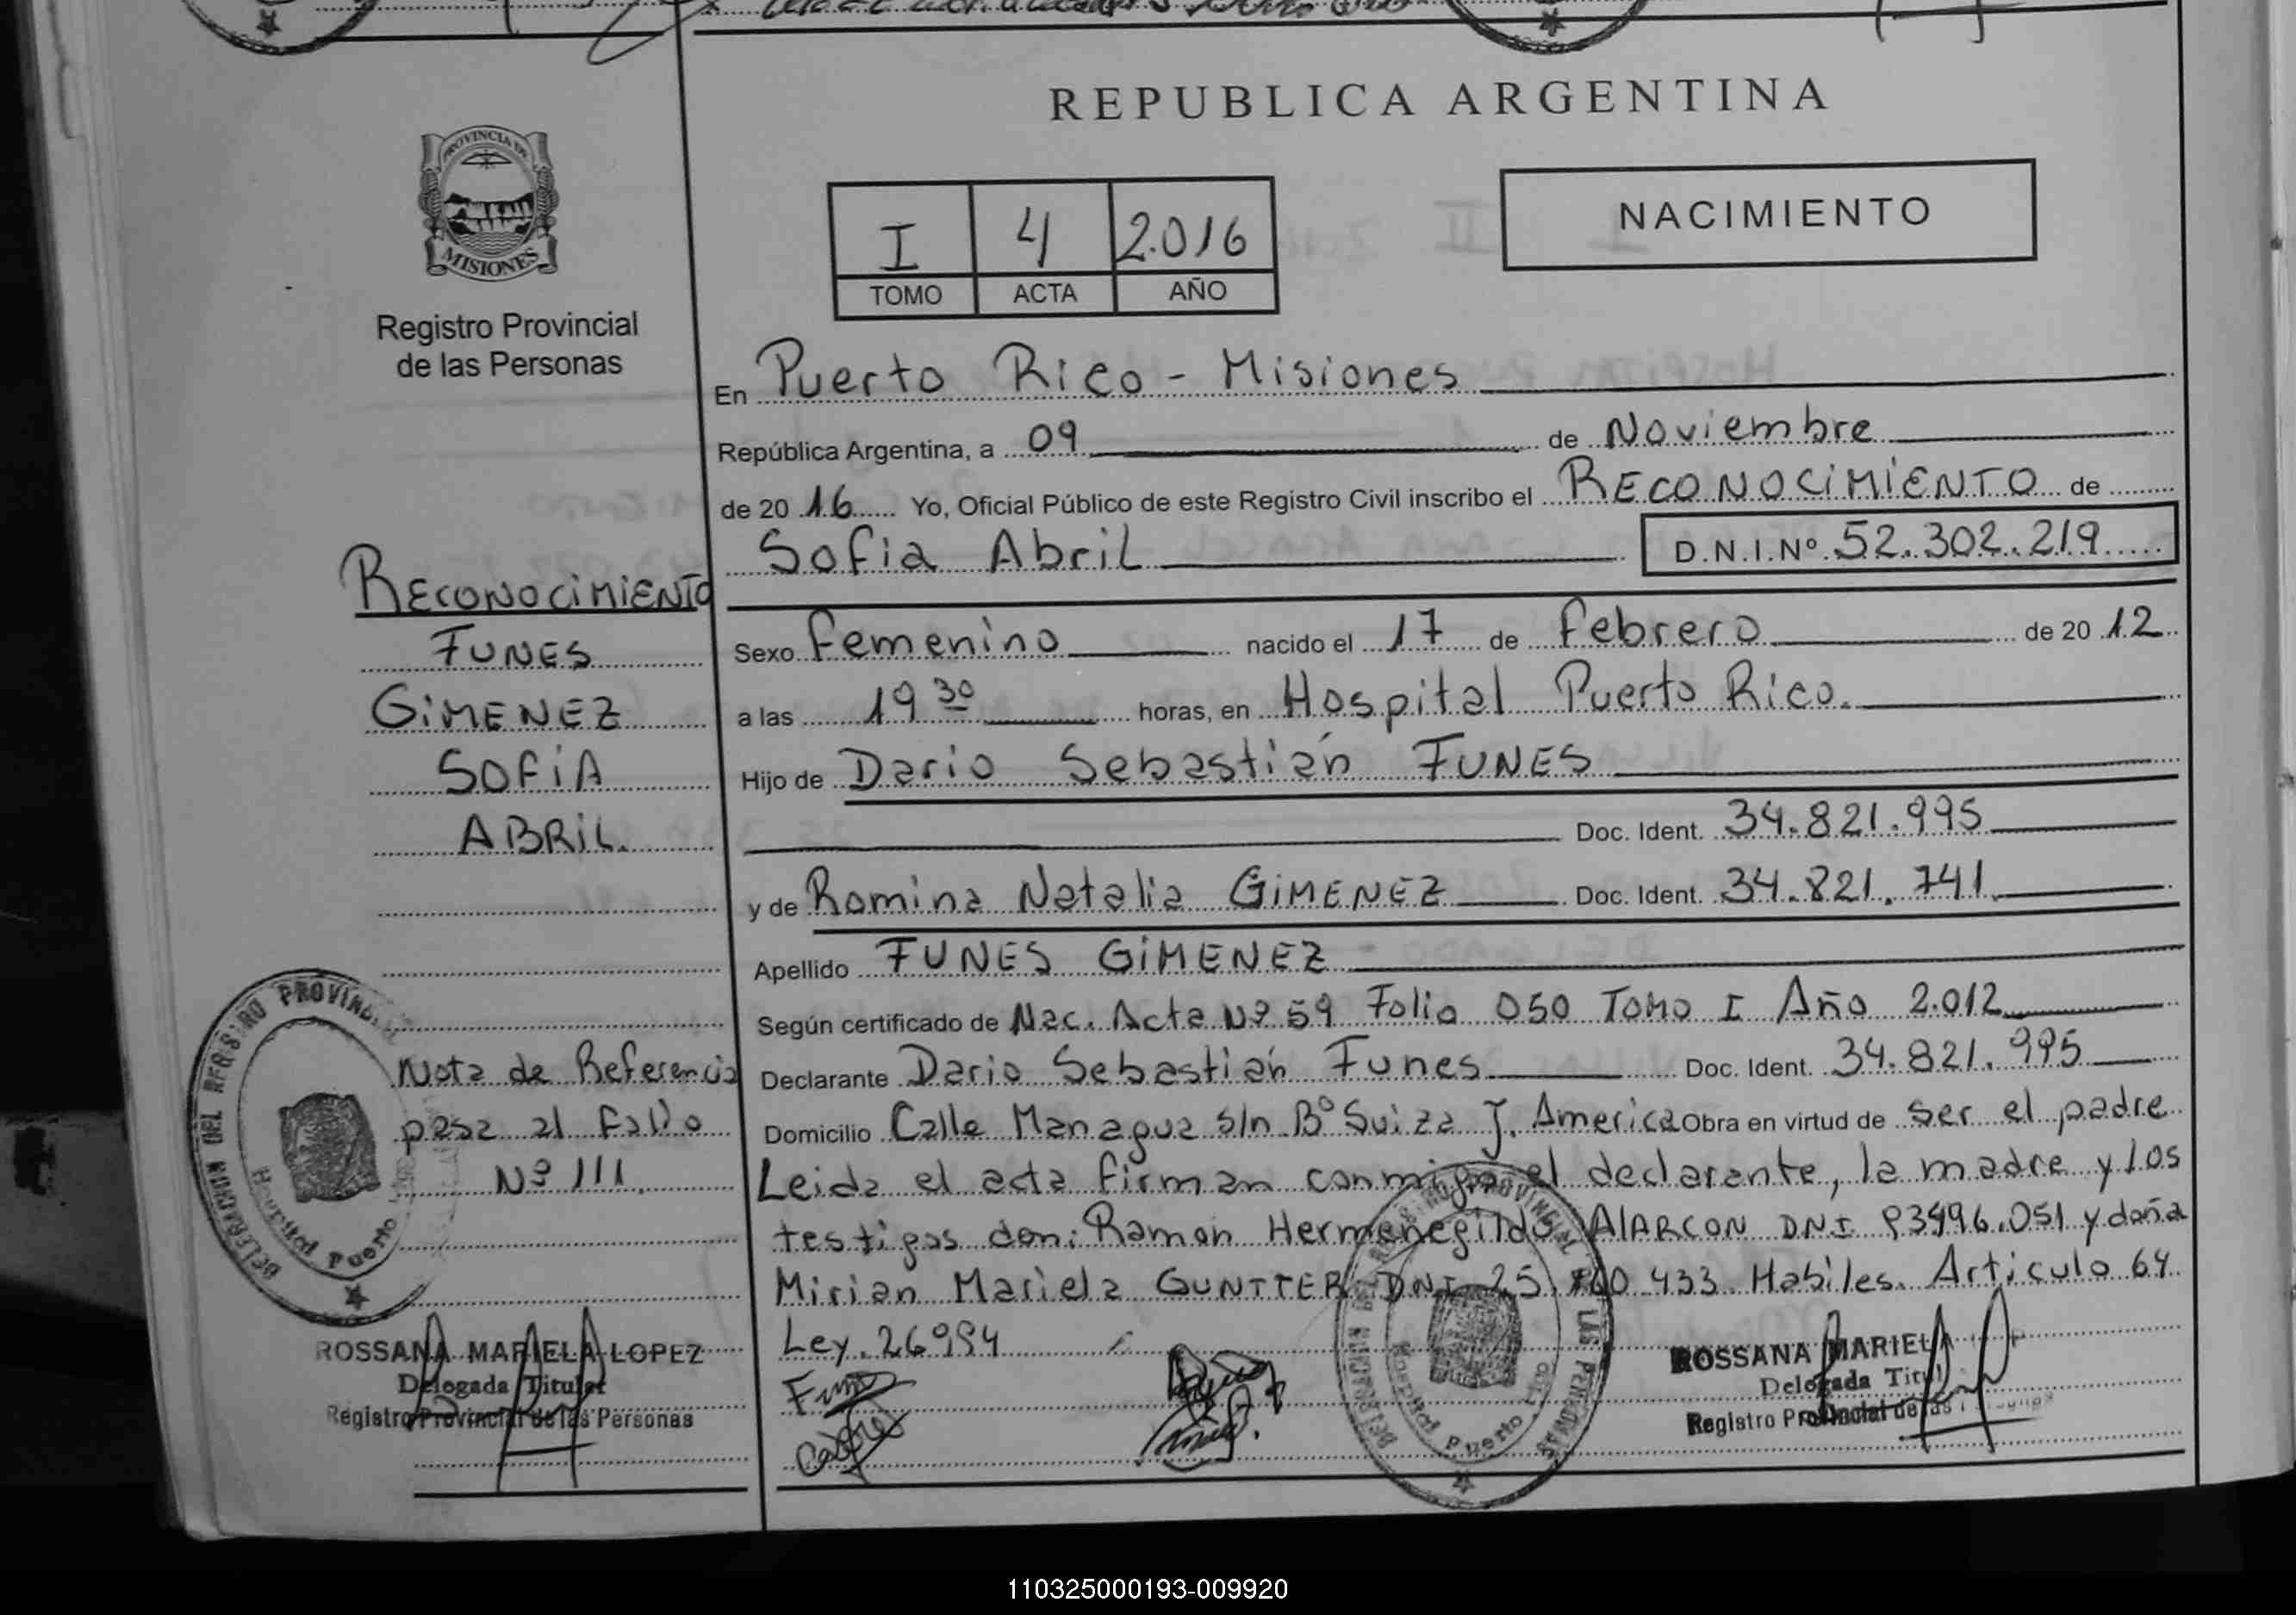 REPUBLICA ARGENTINA
PROVINCIA DE
MISIONES
Registro Provincial
de las Personas
I 4 2.016
TOMO ACTA AÑO
NACIMIENTO
En Puerto Rico - Misiones
República Argentina, a 09 de Noviembre
de 20 16 Yo, Oficial Público de este Registro Civil inscribo el RECONOCIMIENTO de
Sofia Abril D.N.I.Nº 52.302.219
Sexo femenino nacido el 17 de febrero de 20 12
a las 19 30 horas, en Hospital Puerto Rico.
Hijo de Dario Sebastián FUNES
Doc. Ident. 34.821.995
y de Romina Natalia GIMENEZ Doc. Ident. 34.821.741
Apellido FUNES GIMENEZ
Según certificado de Nac. Acta Nº 59 Folio 050 TOMO I Año 2.012
Declarante Dario Sebastián Funes Doc. Ident. 34.821.995
Domicilio Calle Managua s/n Bº Suiza J. America Obra en virtud de ser el padre
Leida el acta firman conmigo el declarante, la madre y los
testigos don: Ramon Hermenegildo ALARCON DNI y doña
Mirian Mariela GUNTTER DNI 25. 433. Habiles. Articulo 64
Ley. 26994
RECONOCIMIENTO
FUNES
GIMENEZ
SOFIA
ABRIL.
Nota de Referencia
pasa al Folio
Nº 111.
DELEGACION DEL REGISTRO PROVINCIAL
Hospital Puerto
ROSSANA MARIELA LOPEZ
Delegada Titular
Registro Provincial de las Personas
Funes
DELEGACION DEL REGISTRO PROVINCIAL DE LAS PERSONAS
Hospital Puerto Rico
ROSSANA MARIELA
Delegada Titul
Registro Provincial de las
110325000193-009920